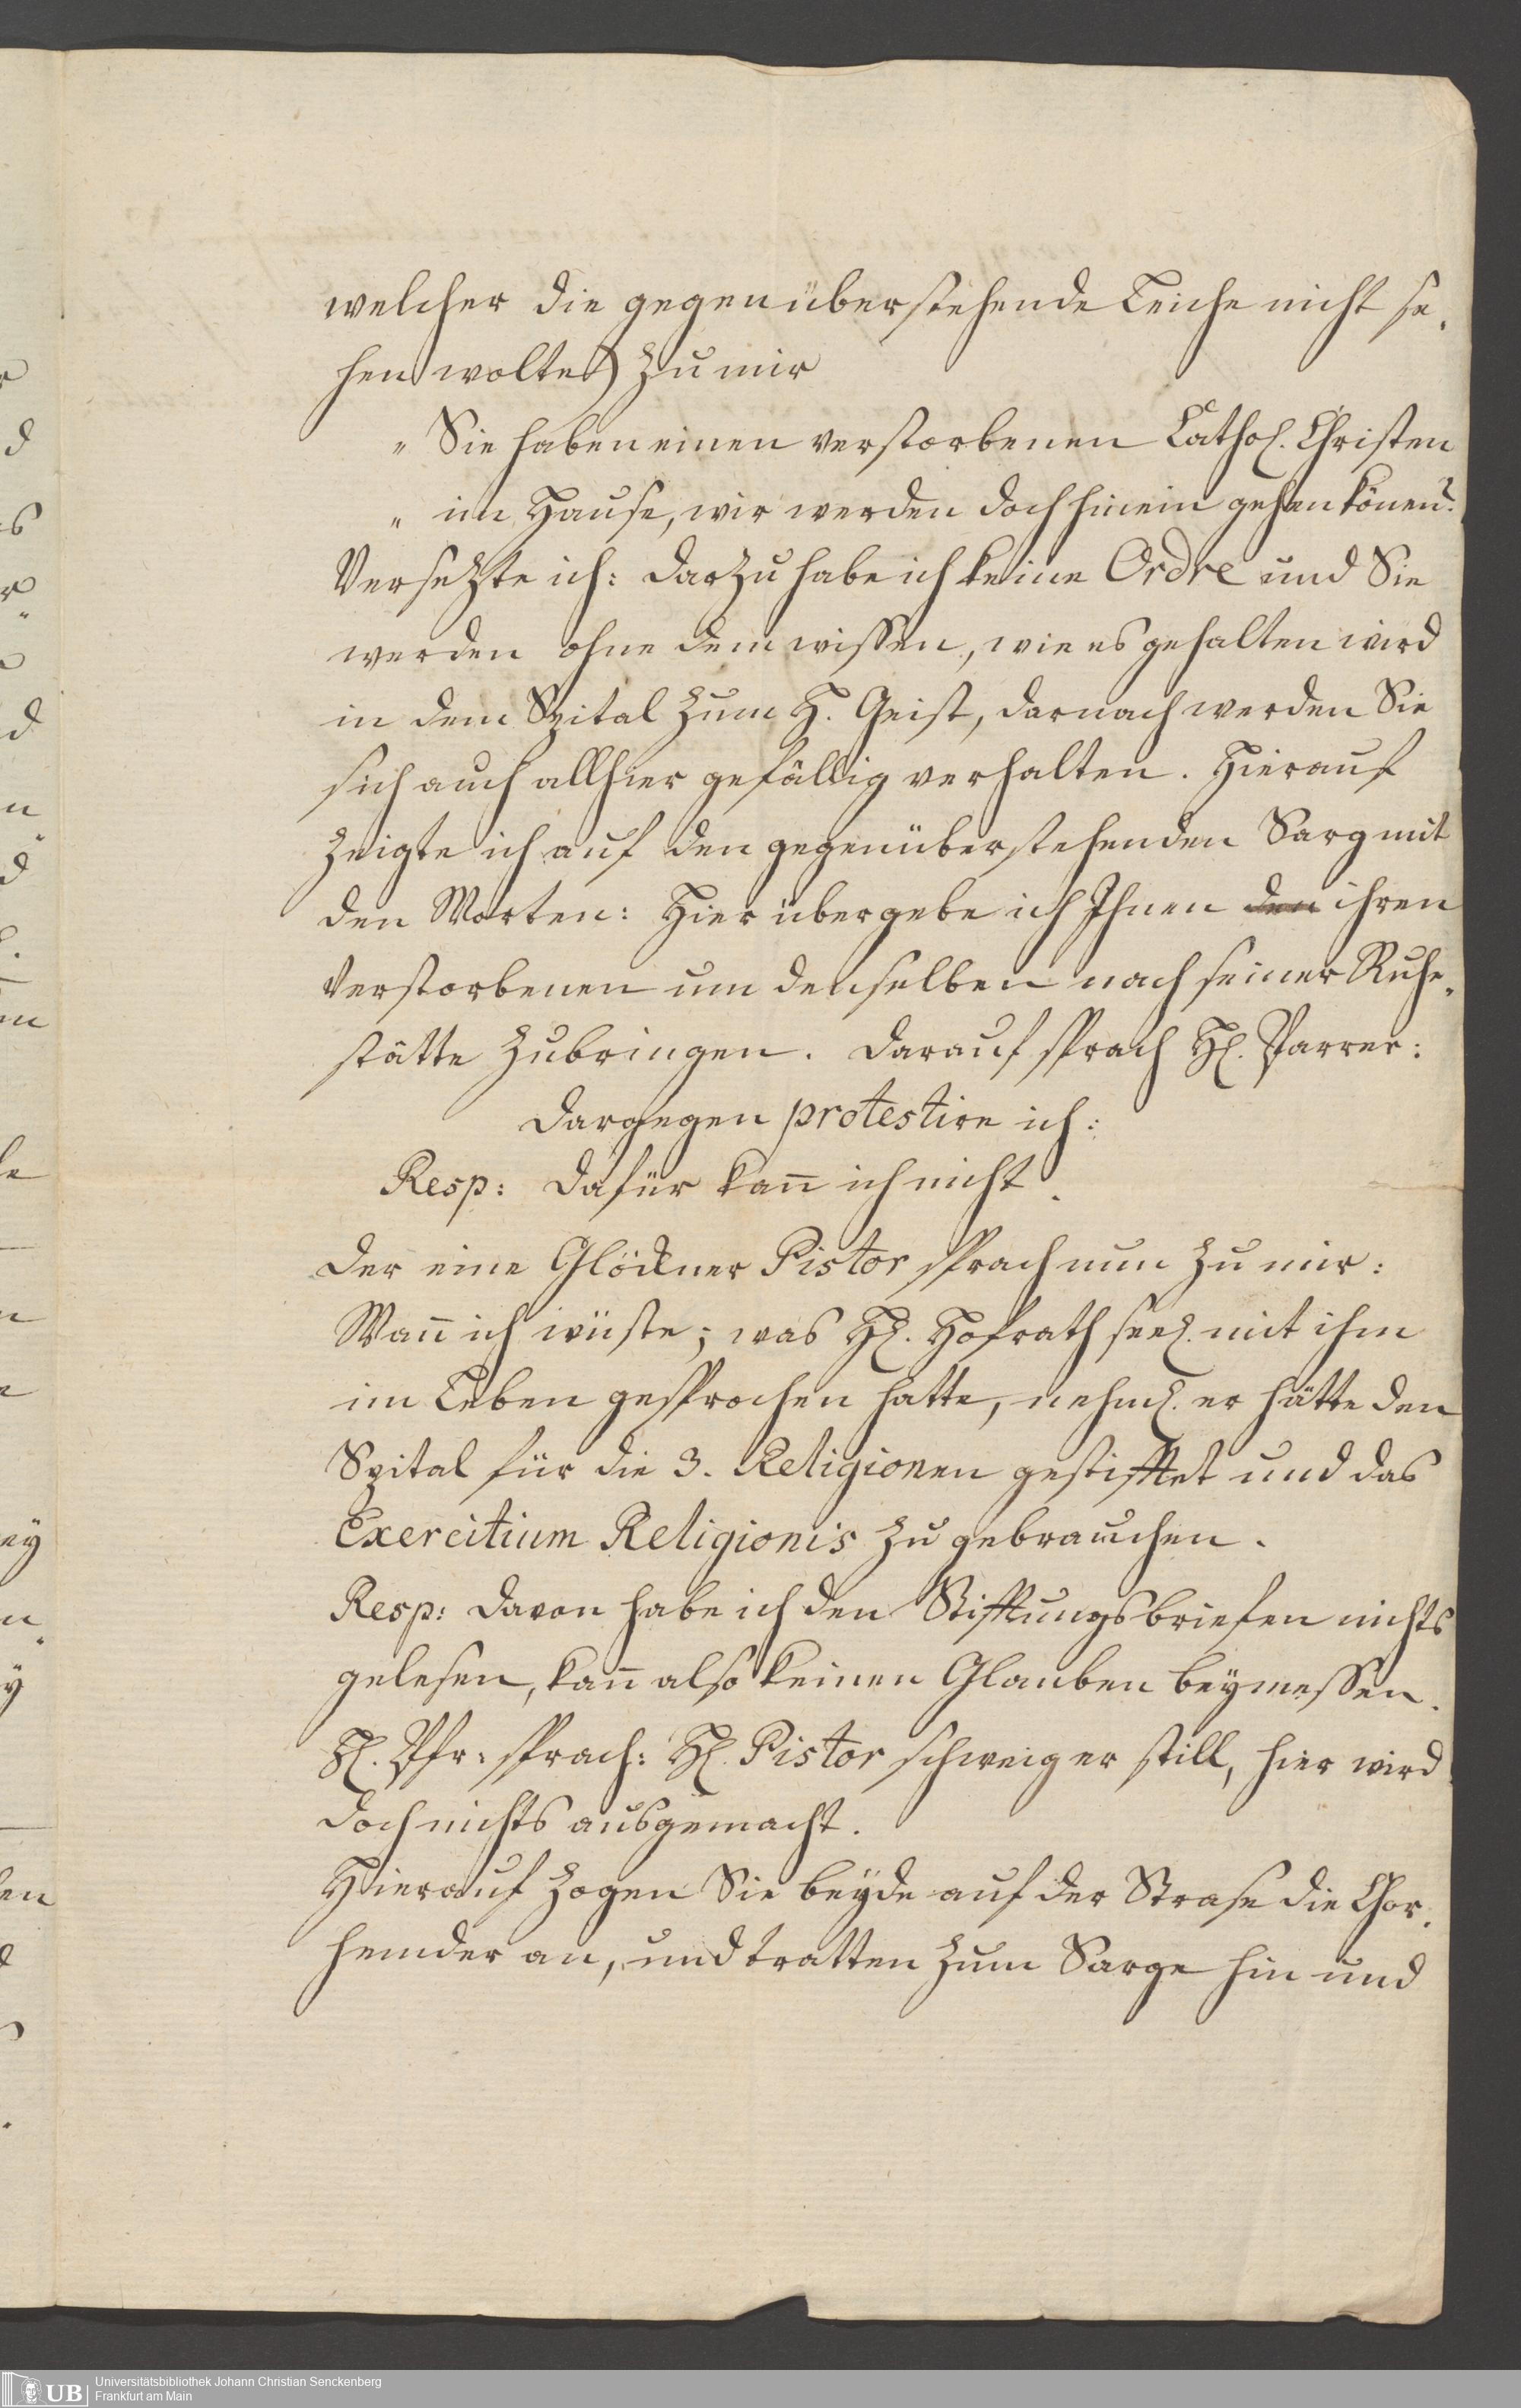 welcher die gegenüberstehende Leiche nicht se-
hen wolte) zu mir
" Sie haben einen verstorbenen Cathol. Christen
" im Hause, wir werden doch hinein gehen könen?
Versezte ich: darzu habe ich keine Ordre und Sie
werden ohne dem wissen, wie es gehalten wird
in dem Spital zum H. Geist, darnach werden Sie
sich auch allhier gefällig verhalten. Hierauf
zeigte ich auf den gegenüberstehenden Sarg mit
den Worten: Hier übergebe ich Ihnen den ihren
Verstorbenen um denselben nach seiner Ruhe-
stätte zubringen. Darauf sprach H. Parrer:
Dargegen protestire ich:
Resp: Dafür kan̄ ich nicht.
Der eine Glöckner Pistor sprach nun zu mir:
Wan̄ ich wüste; was H. Hofrath seel. mit ihm
im Leben gesprochen hatte, nehml. er hätte den
Spital für die 3. Religionen gestifftet und das
Exercitium Religionis zu gebrauchen.
Resp: Davon habe ich den Stifftungsbriefen nichts
gelesen, kan̄ also keinen Glauben beymessen.
H. Pfr: sprach: H. Pistor schweig er still, hier wird
doch nichts ausgemacht.
Hierauf zogen Sie beyde auf der Strase die Chor-
hemder an, und tratten zum Sarge hin und
UB
Universitätsbibliothek Johann Christian Senckenberg
Frankfurt am Main